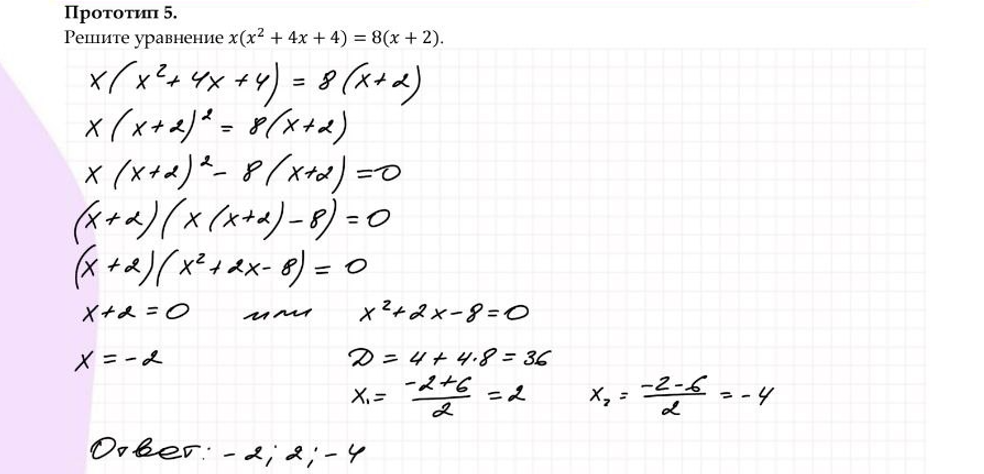 Прототип 5.
Решите уравнение x(x² + 4x + 4) = 8(x + 2).
x(x²+4x+4) = 8(x+2)
x(x+2)² = 8(x+2)
x(x+2)² - 8(x+2) = 0
(x+2)(x(x+2)-8) = 0
(x+2)(x²+2x-8) = 0
x+2=0 или x²+2x-8=0
x=-2 D = 4+4·8 = 36
x₁ = (-2+6)/2 = 2 x₂ = (-2-6)/2 = -4
Ответ: -2; 2; -4